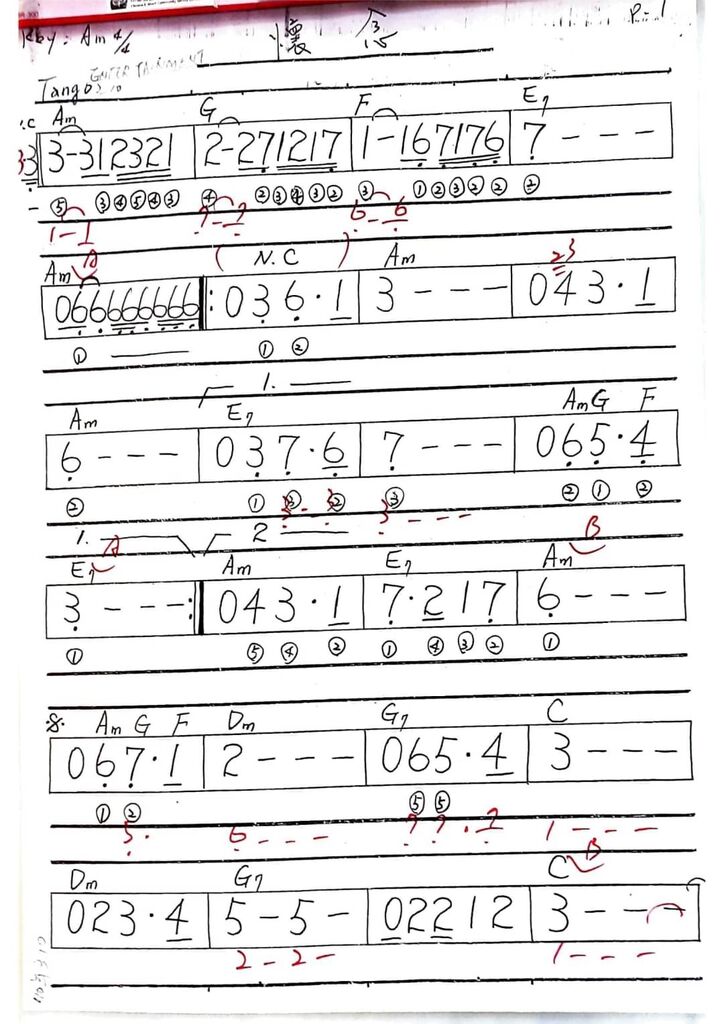 Key: Am 4/4
P-1
Tango
ENTERTAINMENT
Am G F E7
3-312321 2-271217 1-167176 7---
⑤ ③④⑤④③ ④ ②③④③② ③ ①②③②② ②
1-1 7-7 6-6
A
Am (N.C) Am 23
066666666 :036·1 3--- 043·1
① ①②
1.
Am E7 Am G F
6--- 037·6 7--- 065·4
② ①③② ③ ②①②
3-3 3---
1. A 2 B
E7 Am E7 Am
3---: 043·1 7·217 6---
① ⑤④② ①④③② ①
·S· Am G F Dm G7 C
067·1 2--- 065·4 3---
①② ⑤⑤
5· 6--- 77·7 1---
B
Dm G7 C
023·4 5-5- 02212 3---
2-2- 1---